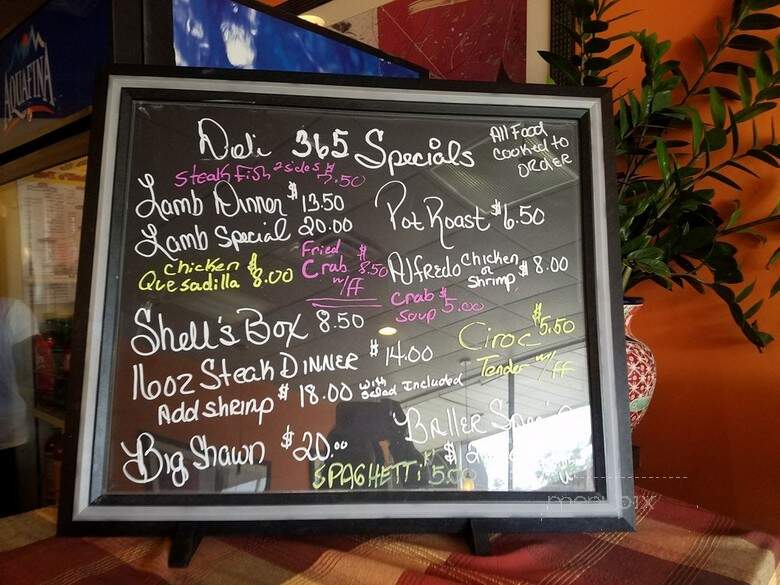 AQUAFINA
Deli 365 Specials
All Food
cooked to
ORdER
Steak fish 2 sides $7.50
Lamb Dinner $13.50
Lamb Special 20.00
Pot Roast $6.50
Chicken
Quesadilla $8.00
Fried
Crab $8.50
w/ff
Alfredo Chicken
or
Shrimp $8.00
Crab
Soup $5.00
Shell's Box 8.50
Ciroc $5.50
Tender w/ff
16oz Steak DINNER $14.00
Add shrimp $18.00 with
Salad Included
Baller
Big Shawn $20.00
SPAGHETTi
menupix